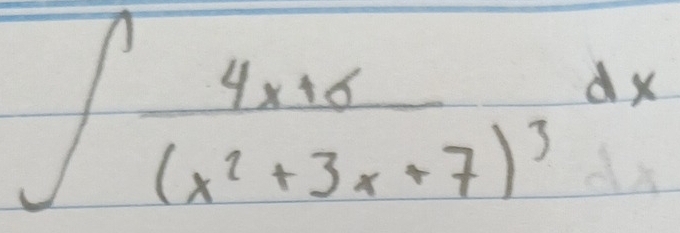 ∫ 4x+6 / (x²+3x+7)³ dx